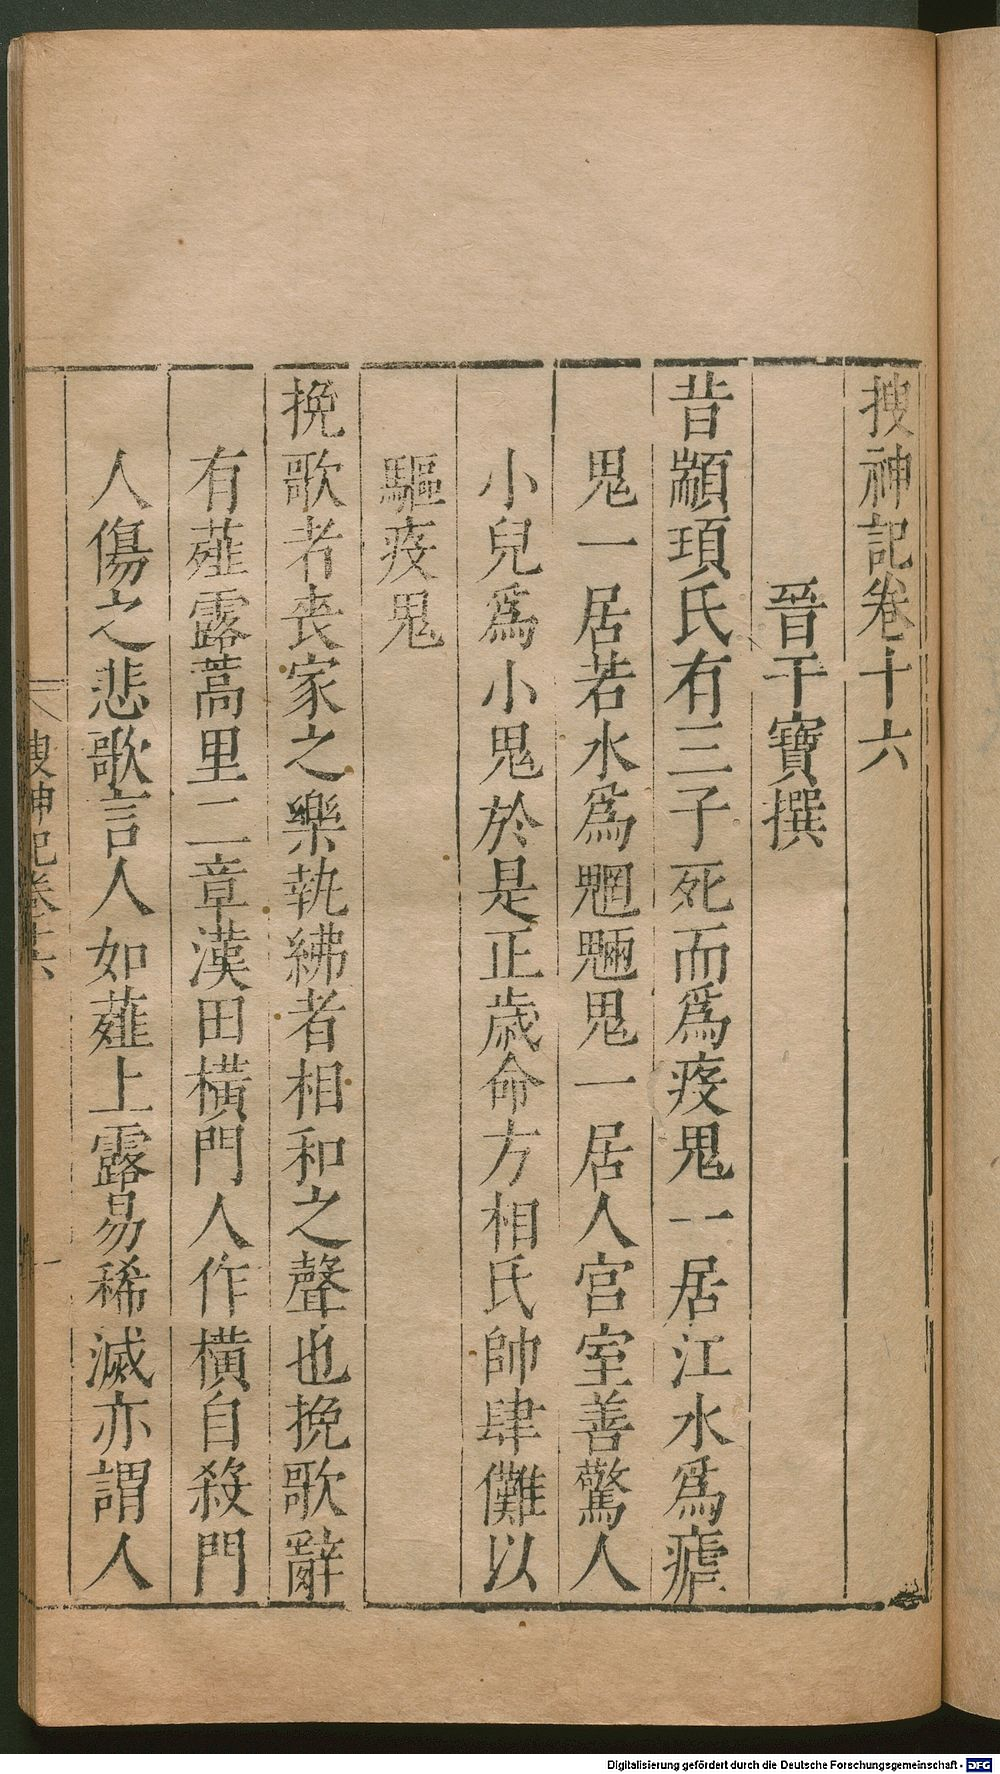 搜神記卷十六
晉干寶撰
昔顓頊氏有三子死而爲疫鬼一居江水爲瘧
鬼一居若水爲魍魎鬼一居人宮室善驚人
小兒爲小鬼於是正歲命方相氏帥肆儺以
驅疫鬼
挽歌者喪家之樂執紼者相和之聲也挽歌辭
有薤露蒿里二章漢田橫門人作橫自殺門
人傷之悲歌言人如薤上露易稀滅亦謂人
搜神記卷十六
一
Digitalisierung gefördert durch die Deutsche Forschungsgemeinschaft - DFG